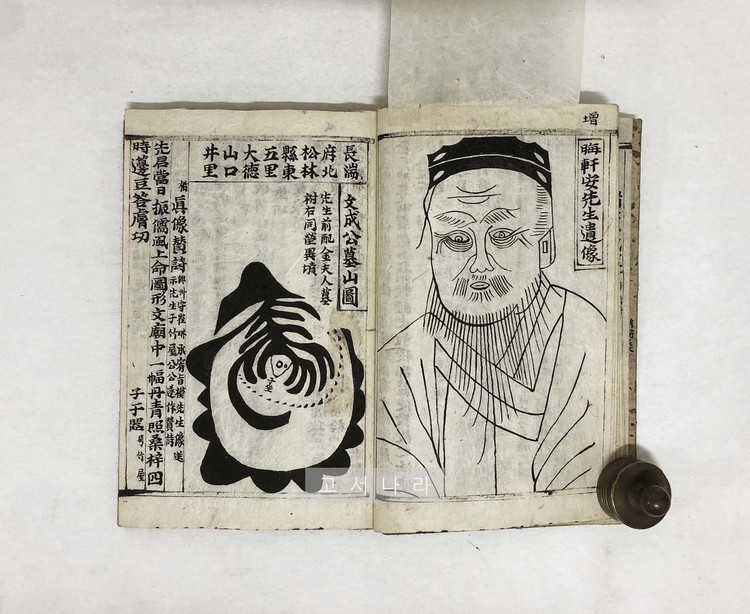 增
晦軒安先生遺像
長湍
府北
松林
縣東
五里
大德
山口
井里
文成公墓山圖
先生前配金夫人墓
祔右同塋異墳
子坐
眞像贊詩
示先生子竹屋公公遂作贊詩
先君當日振儒風上命圖形文廟中一幅丹靑照桑梓四
時籩豆答膚功
子于器 号竹屋
고서나라